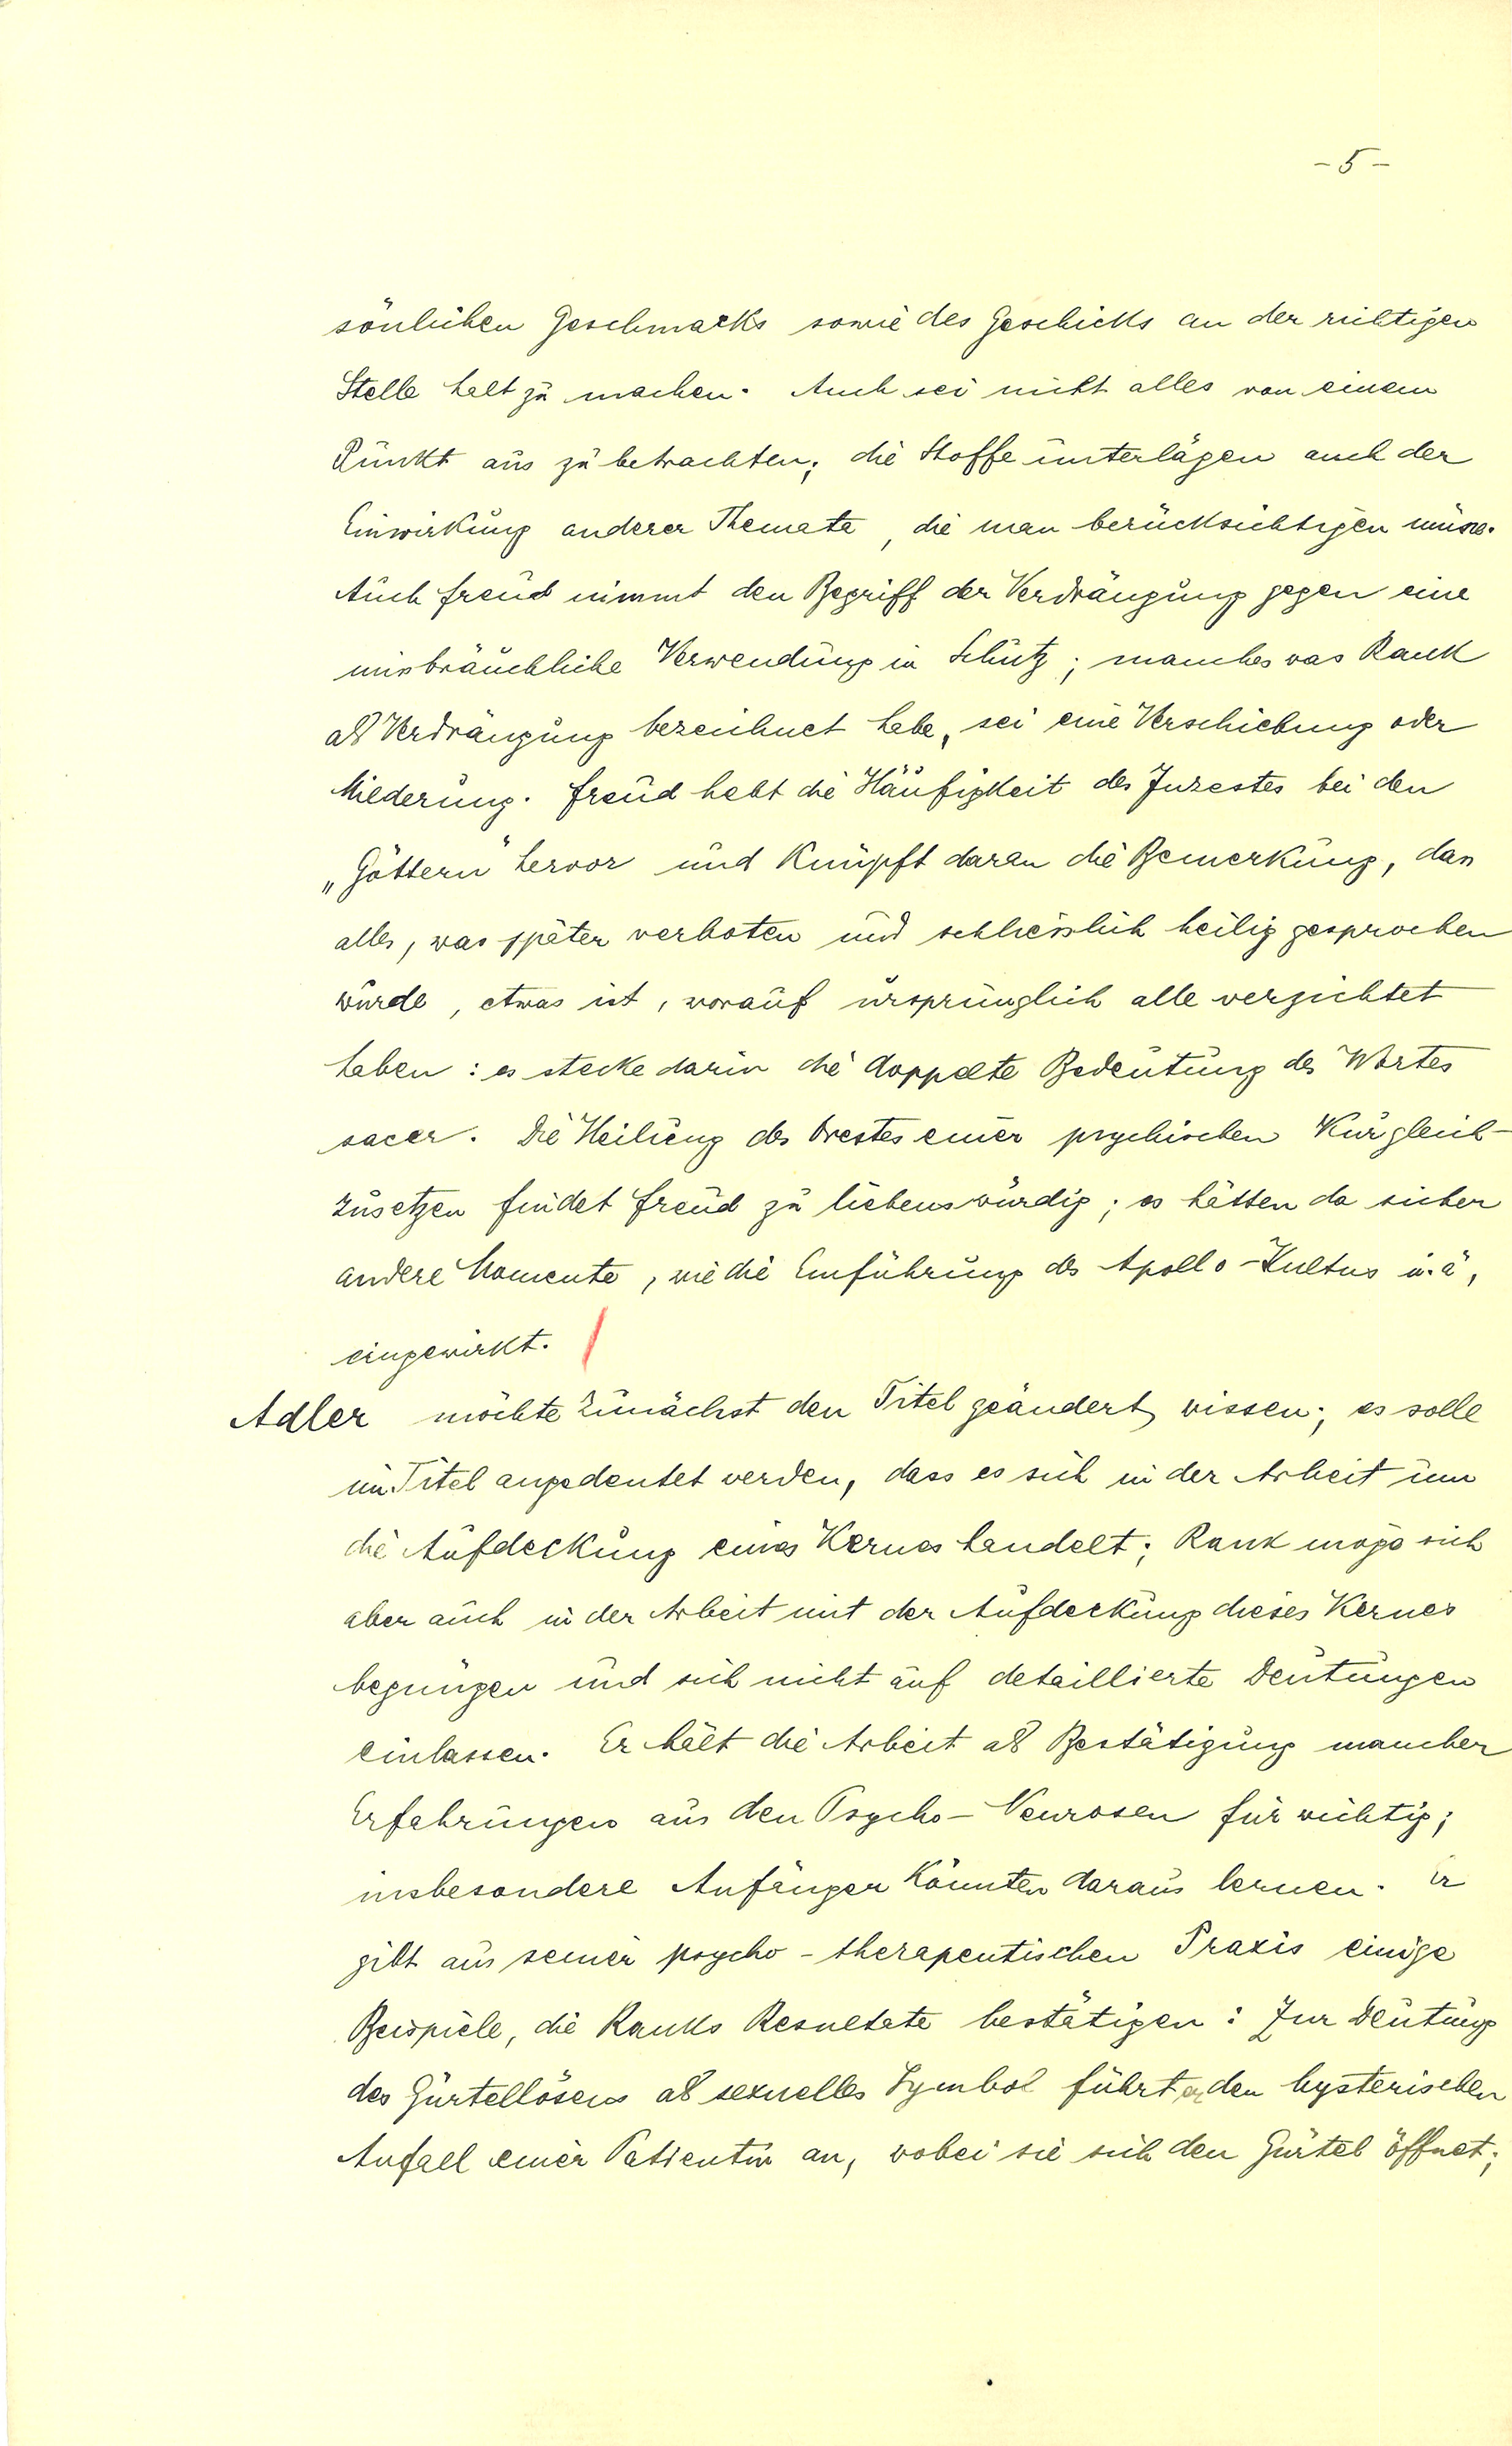 - 5 -
sönlichen Geschmacks sowie des Geschicks an der richtigen
Stelle halt zu machen. Auch sei nicht alles von einem
Punkt aus zu betrachten; die Stoffe unterlägen auch der
Einwirkung anderer Themata, die man berücksichtigen müsse.
Auch Freud nimmt den Begriff der Verdrängung gegen eine
misbräuchliche Verwendung in Schutz; manches was Rank
als Verdrängung bezeichnet habe, sei eine Verschiebung oder
Milderung. Freud hebt die Häufigkeit des Inzestes bei den
„Göttern" hervor und knüpft daran die Bemerkung, das
alles, was später verboten und schliesslich heilig gesprochen
wurde, etwas ist, worauf ursprünglich alle verzichtet
haben: es stecke darin die doppelte Bedeutung des Wortes
sacer. Die Heilung des Orestes einer psychischen Kur gleich-
zusetzen findet Freud zu liebenswürdig; es hätten da sicher
andere Momente, wie die Einführung des Apollo-Kultus u. ä,
eingewirkt.
Adler möchte zunächst den Titel geändert wissen; es solle
im Titel angedeutet werden, dass es sich in der Arbeit um
die Aufdeckung eines Kernes handelt; Rank möge sich
aber auch in der Arbeit mit der Aufdeckung dieses Kernes
begnügen und sich nicht auf detaillierte Deutungen
einlassen. Er hält die Arbeit als Bestätigung mancher
Erfahrungen aus den Psycho-Neurosen für wichtig;
insbesondere Anfänger könnten daraus lernen. Er
gibt aus seiner psycho-therapeutischen Praxis einige
Beispiele, die Ranks Resultate bestätigen: Zur Deutung
des Gürtellösens als sexuelles Symbol führt er den hysterischen
Anfall einer Patientin an, wobei sie sich den Gürtel öffnet;